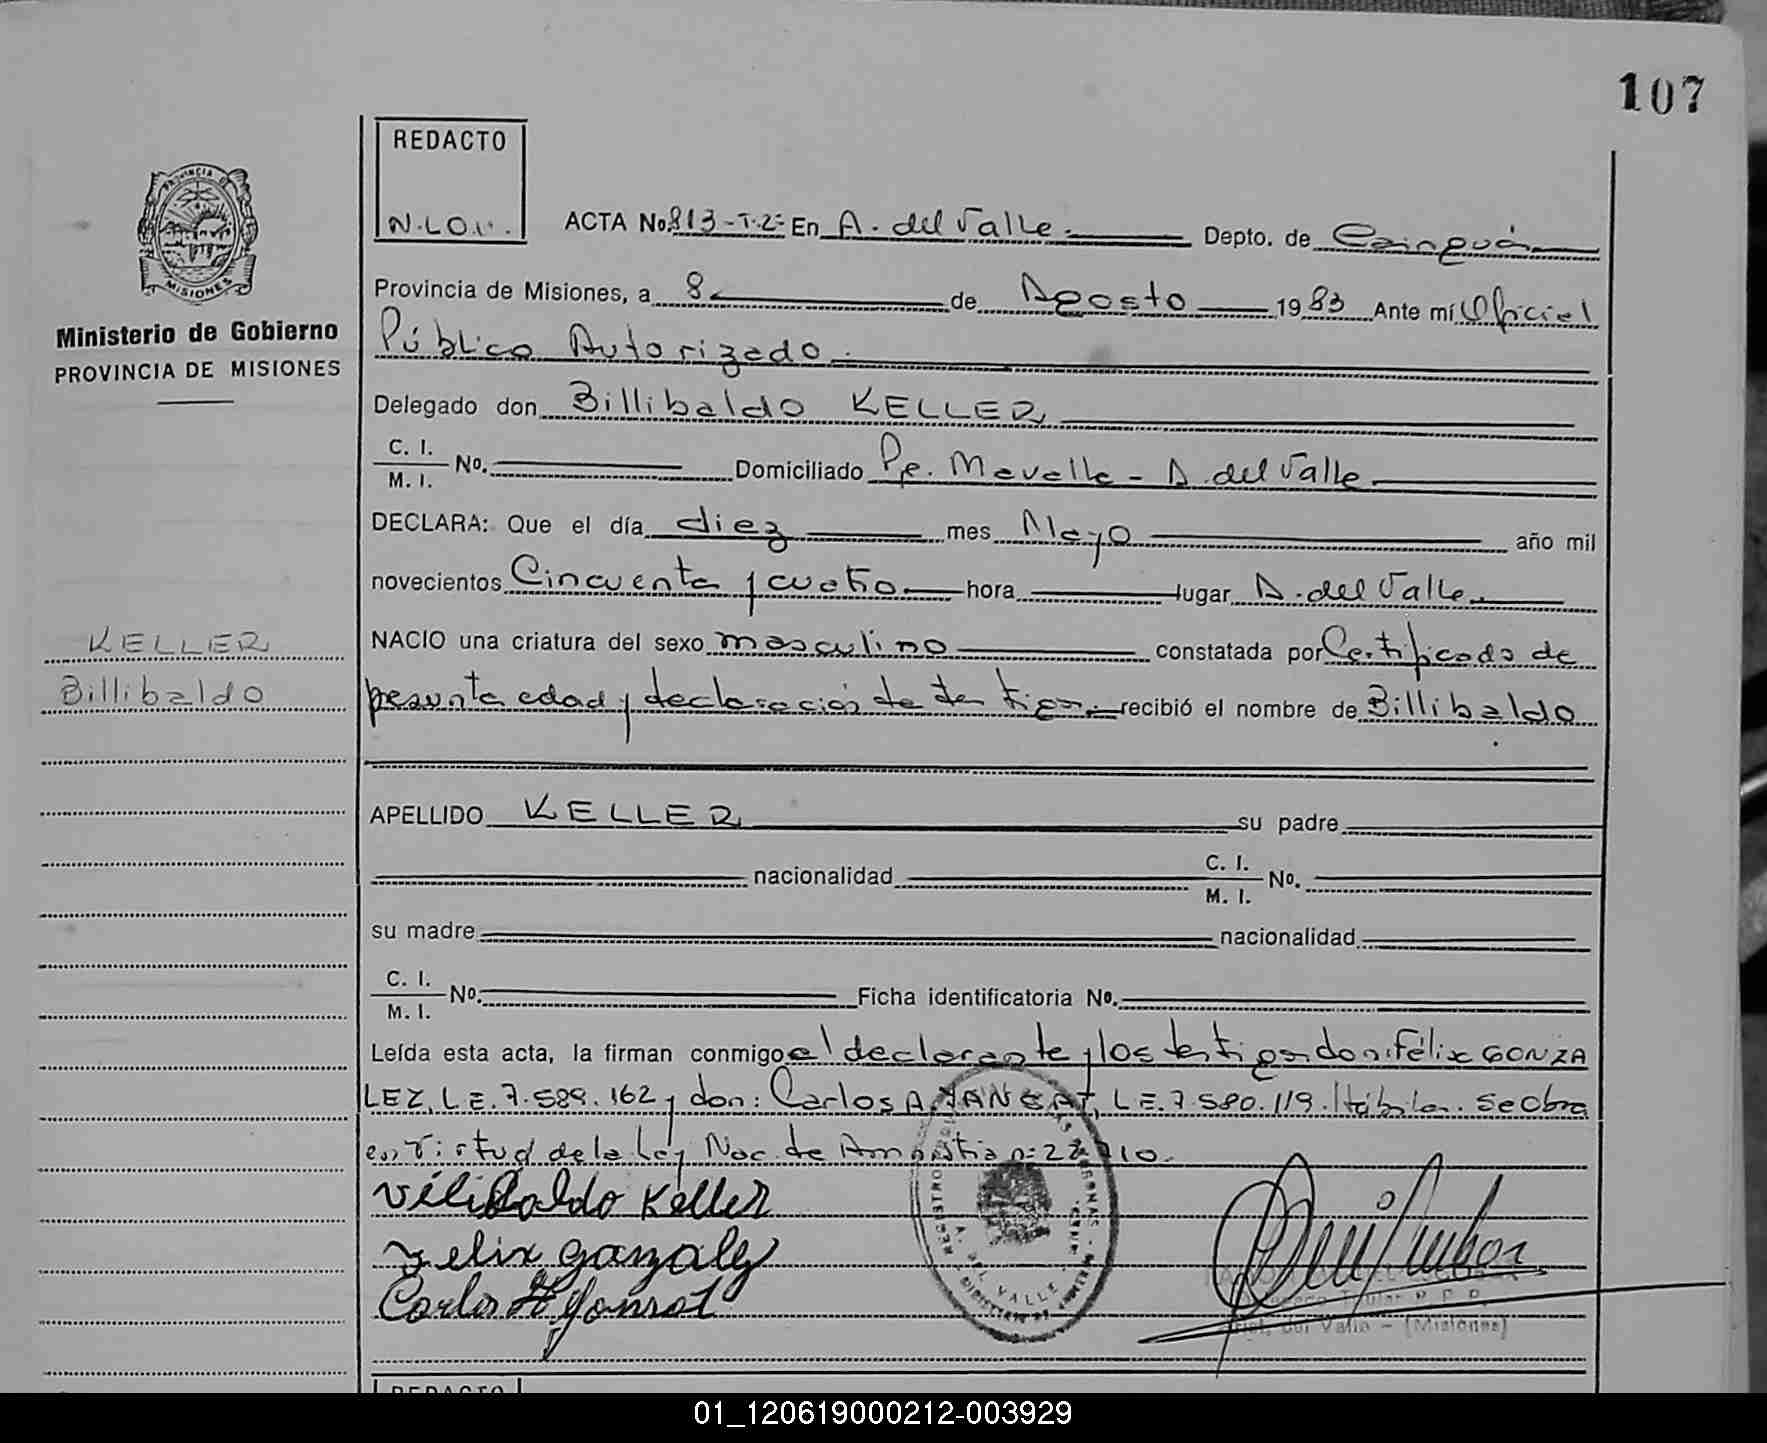 107
REDACTO
N.LO.V.
ACTA No. 813-T.2- En A. del Valle. Depto. de Cainguás
PROVINCIA DE
MISIONES
Provincia de Misiones, a 8 de Agosto 1983 Ante mí Oficial
Público Autorizado.
Ministerio de Gobierno
PROVINCIA DE MISIONES
Delegado don Billibaldo KELLER
C. I.
M. I. No. Domiciliado Pje. Mavalle - A. del Valle.
DECLARA: Que el día diez mes Mayo año mil
novecientos Cincuenta y cuatro hora lugar A. del Valle.
NACIO una criatura del sexo masculino constatada por Certificado de
KELLER
Billibaldo
presunta edad y declaración de testigos. recibió el nombre de Billibaldo
APELLIDO KELLER su padre
nacionalidad C. I.
M. I. No.
su madre nacionalidad
C. I.
M. I. No. Ficha identificatoria No.
Leída esta acta, la firman conmigo el declarante y los testigos don: Félix GONZA
LEZ, L.E. 7.589.162 y don: Carlos A. L.E. 7.580.119. Hábiles. Se obra
en virtud de la Ley Nac. de Amnistía n: 22
Vilibaldo Keller
Felix gonzalez
Carlos
A. DEL VALLE
(Misiones)
REDACTO
01_120619000212-003929